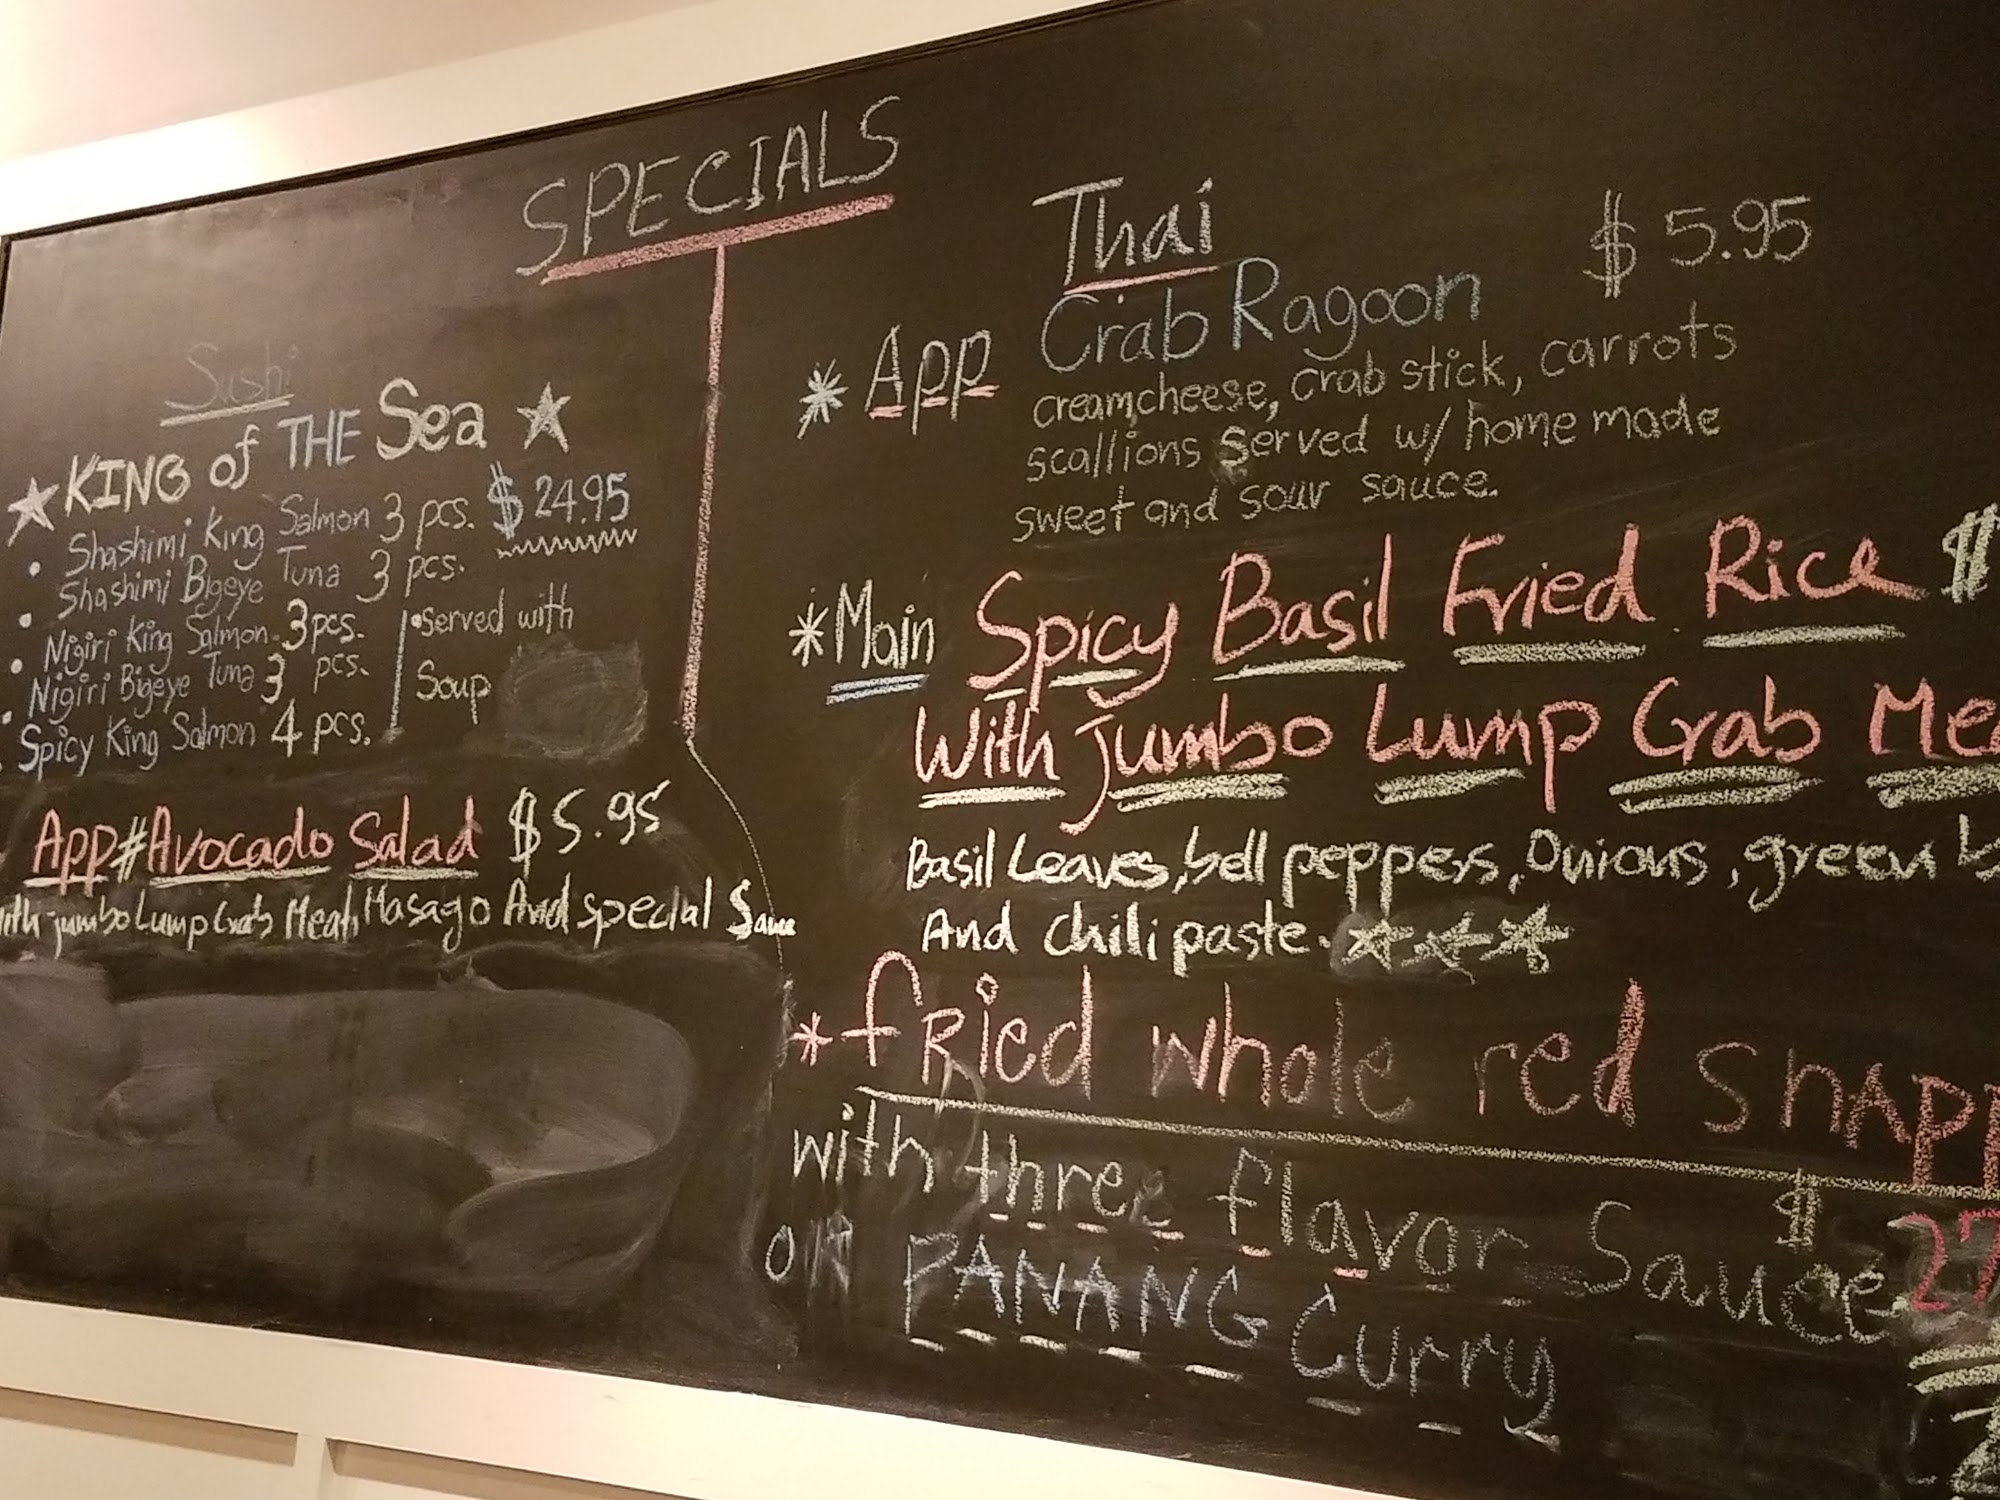 SPECIALS
Sushi
KING of THE Sea
$24.95
Shashimi King Salmon 3 pcs.
Shashimi Bigeye Tuna 3 pcs.
Nigiri King Salmon 3 pcs.
Nigiri Bigeye Tuna 3 pcs.
Spicy King Salmon 4 pcs.
served with
Soup
App#Avocado Salad $5.95
with jumbo Lump Crab Meat, Masago And special Sauce
Thai
$5.95
*App Crab Ragoon
creamcheese, crab stick, carrots
scallions served w/ home made
sweet and sour sauce.
*Main Spicy Basil Fried Rice $
With jumbo Lump Crab Mea
Basil Leaves, bell peppers, Onions, green b
And chili paste.
*fRied whole red snapp
with three flavor Sauce $ 27
OR PANANG Curry